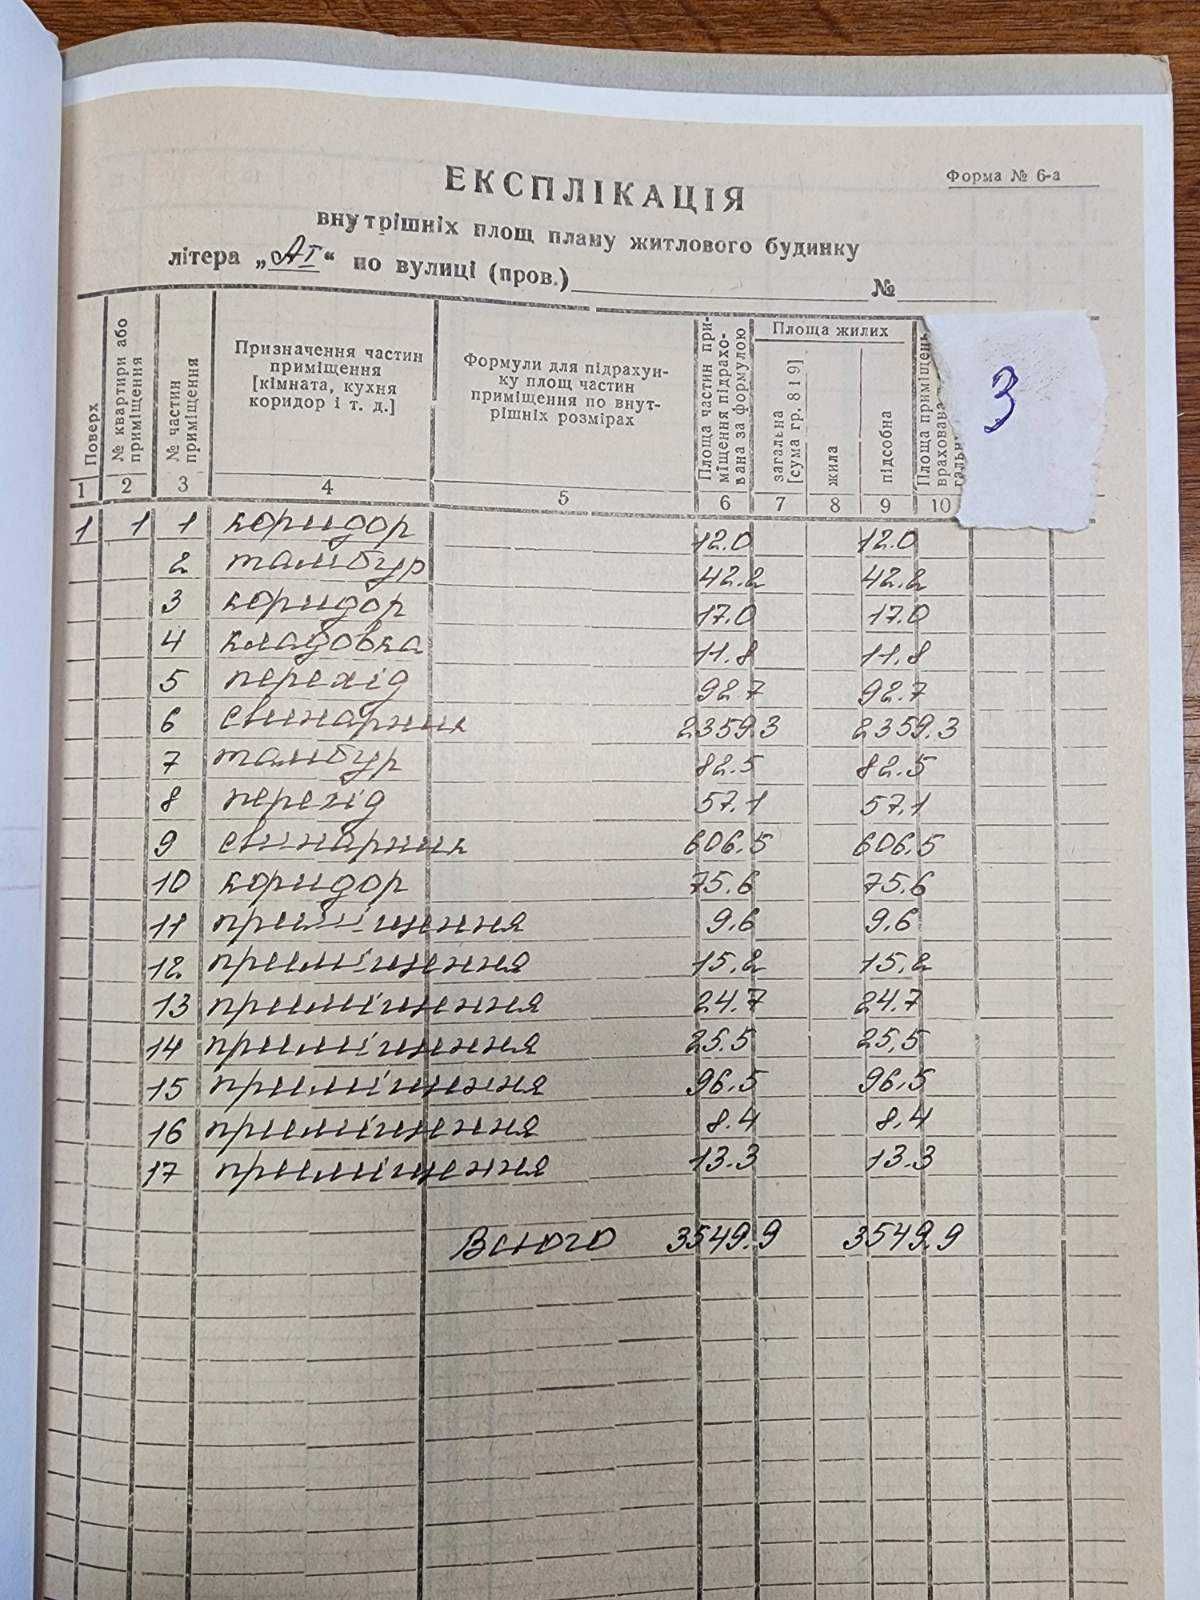 Форма № 6-а
ЕКСПЛІКАЦІЯ
внутрішніх площ плану житлового будинку
літера „АІ“ по вулиці (пров.) №
Поверх
№ квартири або приміщення
№ частин приміщення
Призначення частин приміщення [кімната, кухня коридор і т. д.]
Формули для підрахунку площ частин приміщення по внутрішніх розмірах
Площа частин приміщення підрахована за формулою
Площа жилих
загальна [сума гр. 8 і 9]
жила
підсобна
Площа приміщень
3
1 2 3 4 5 6 7 8 9 10
1 1 1 коридор 12.0 12.0
2 тамбур 42.2 42.2
3 коридор 17.0 17.0
4 кладовка 11.8 11.8
5 перехід 92.7 92.7
6 свинарник 2359.3 2359.3
7 тамбур 82.5 82.5
8 перехід 57.1 57.1
9 свинарник 606.5 606.5
10 коридор 75.6 75.6
11 приміщення 9.6 9.6
12 приміщення 15.2 15.2
13 приміщення 24.7 24.7
14 приміщення 25.5 25.5
15 приміщення 96.5 96.5
16 приміщення 8.4 8.4
17 приміщення 13.3 13.3
Всього 3549.9 3549.9